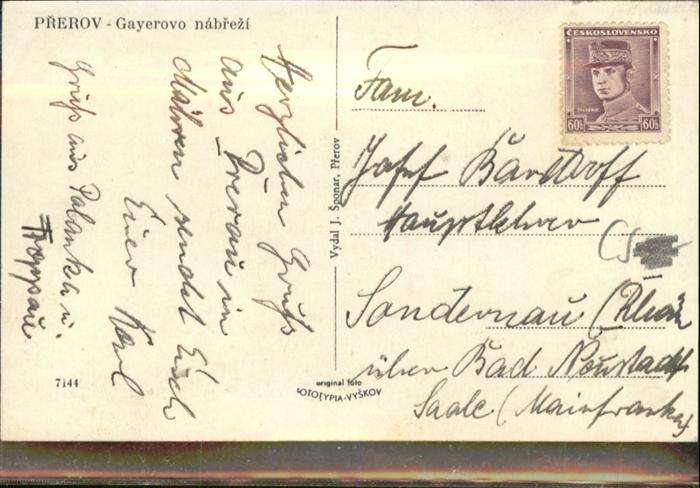 PŘEROV - Gayerovo nábřeží
Herzlichen Gruß
aus Prerau in
Mähren sendet Euch
Euer Karl
Gruß aus Palanka u.
Troppau
7144
Vydal J. Šponar, Přerov
original foto
FOTOTYPIA-VYŠKOV
ČESKOSLOVENSKO
60h 60h
Fam.
Josef Bärdorff
Hauptlehrer
Sondernau (Rhön
über Bad Neustadt
Saale (Mainfranken)